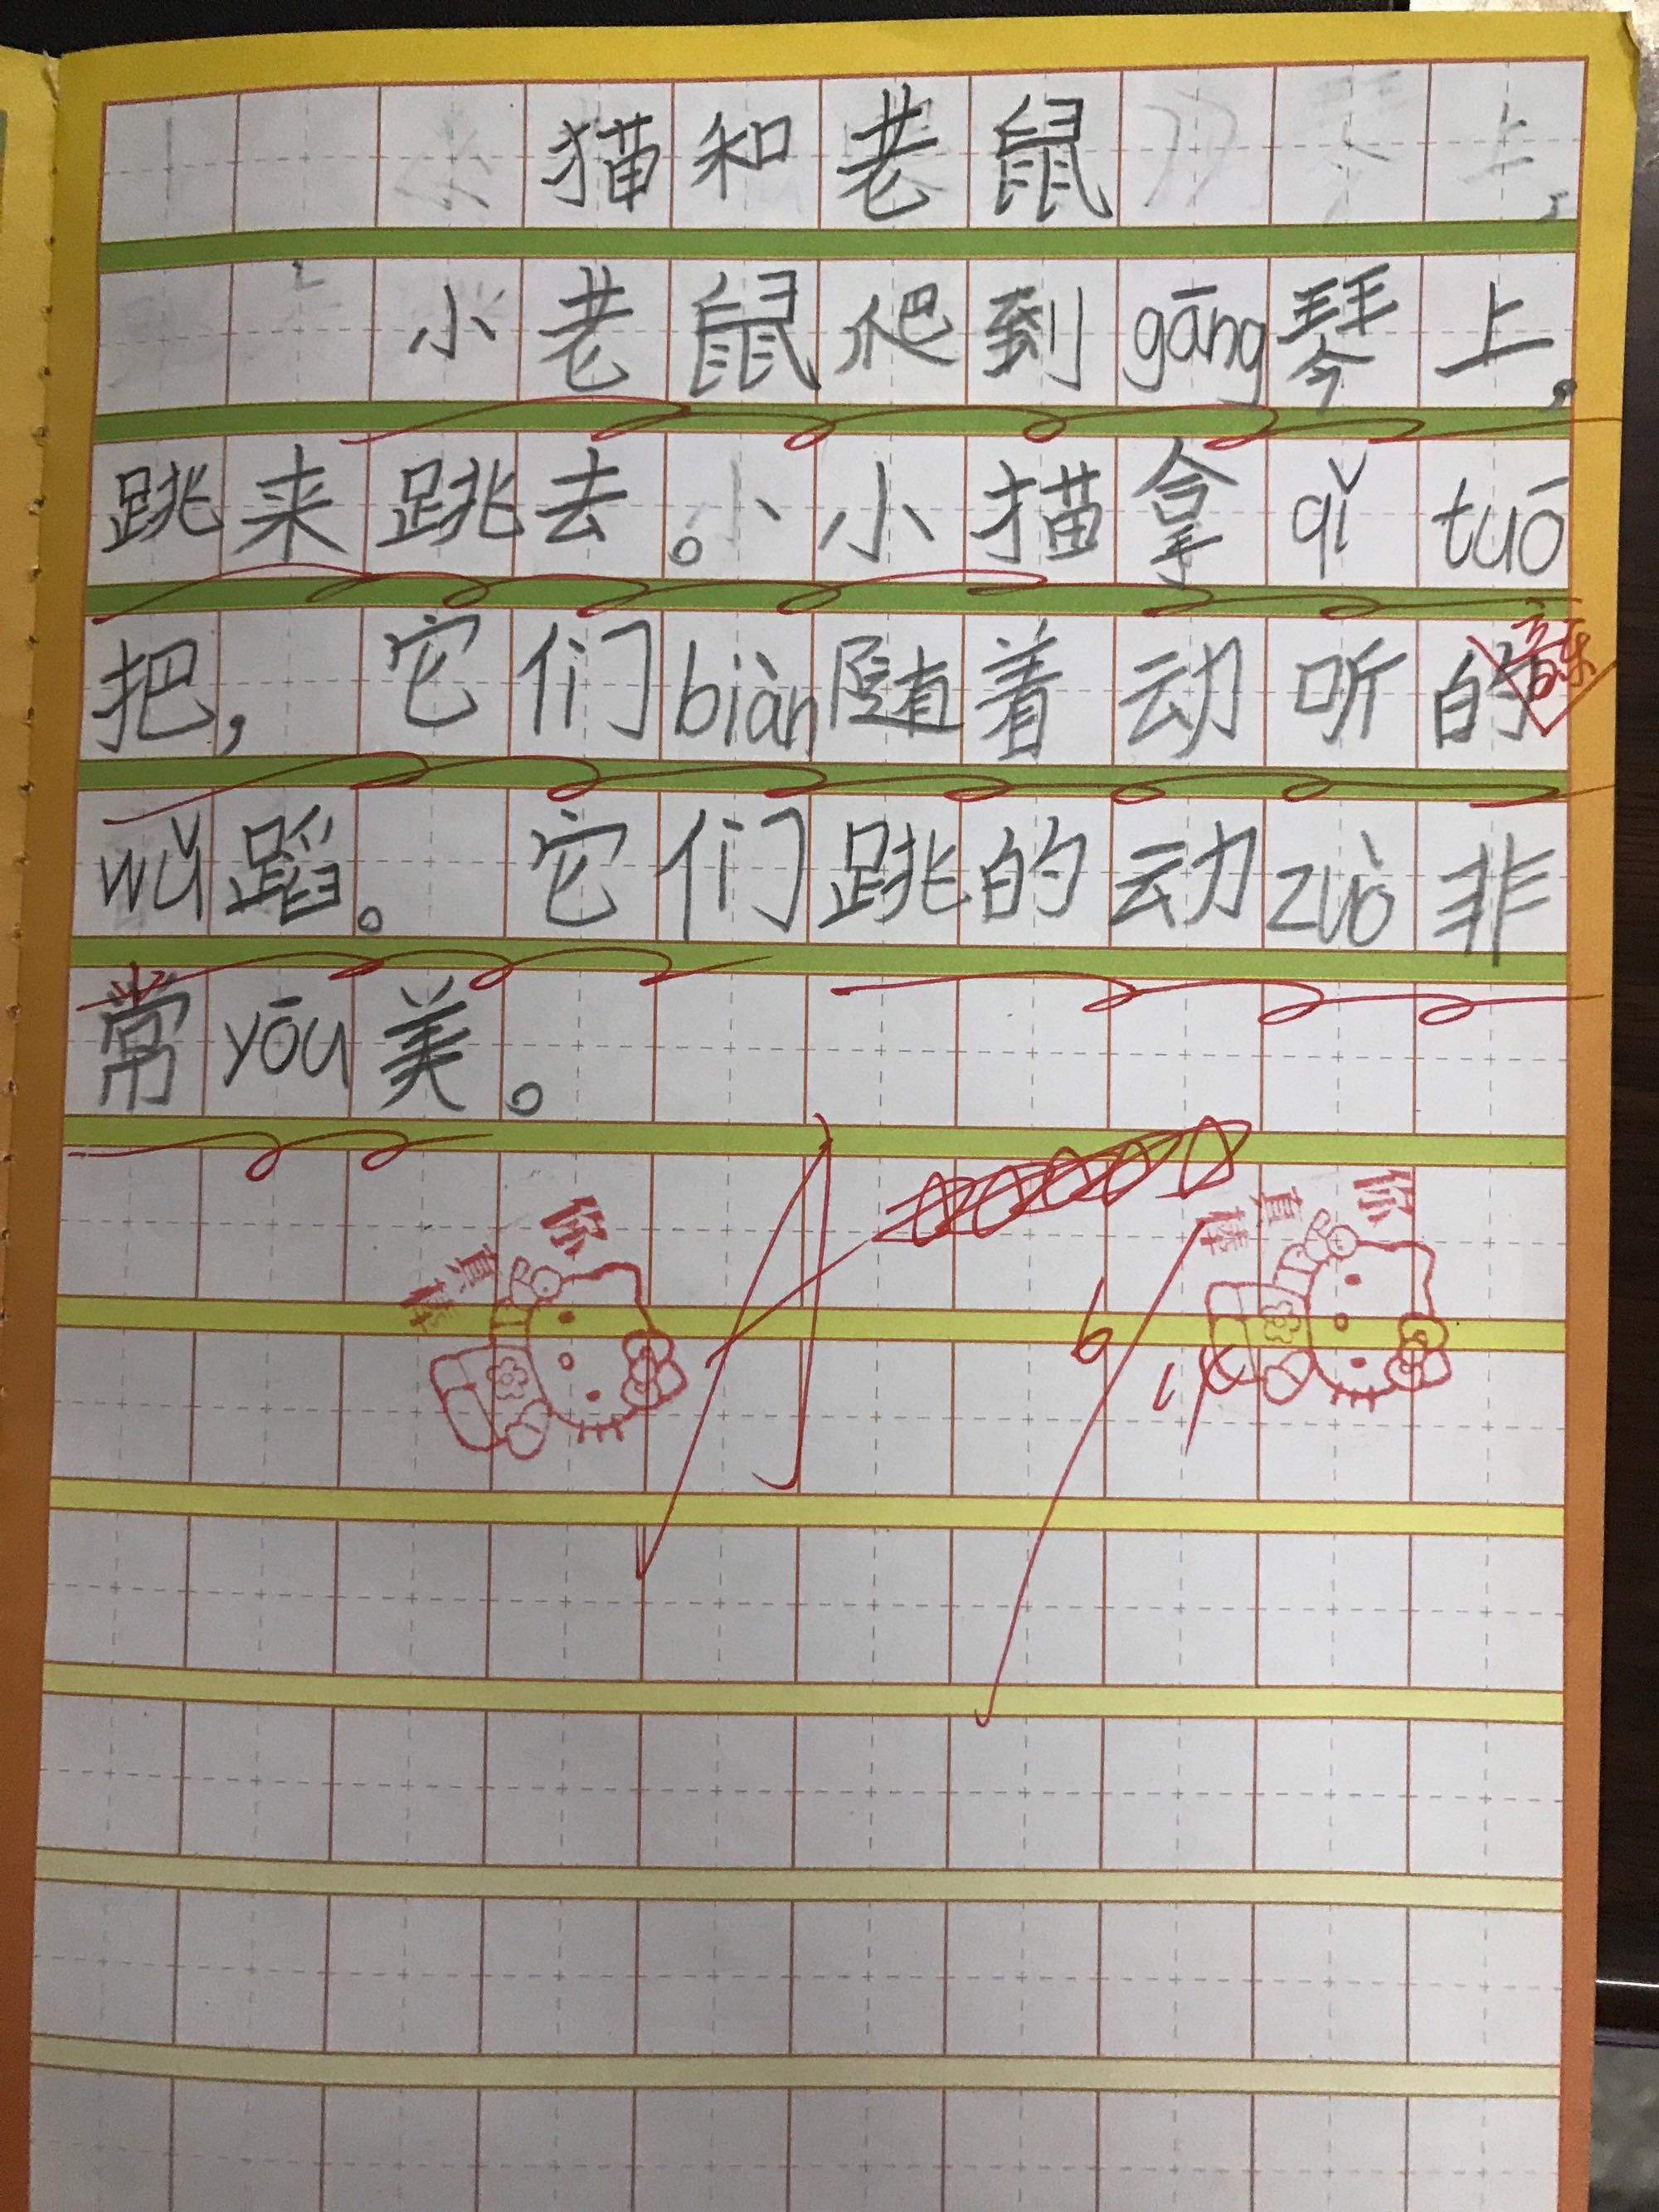 猫和老鼠
小老鼠爬到gāng琴上，
跳来跳去。小小猫拿qǐtuō
把，它们biàn随着动听的音乐
wǔ蹈。它们跳的动zuò非
常yōu美。
你真棒
你真棒